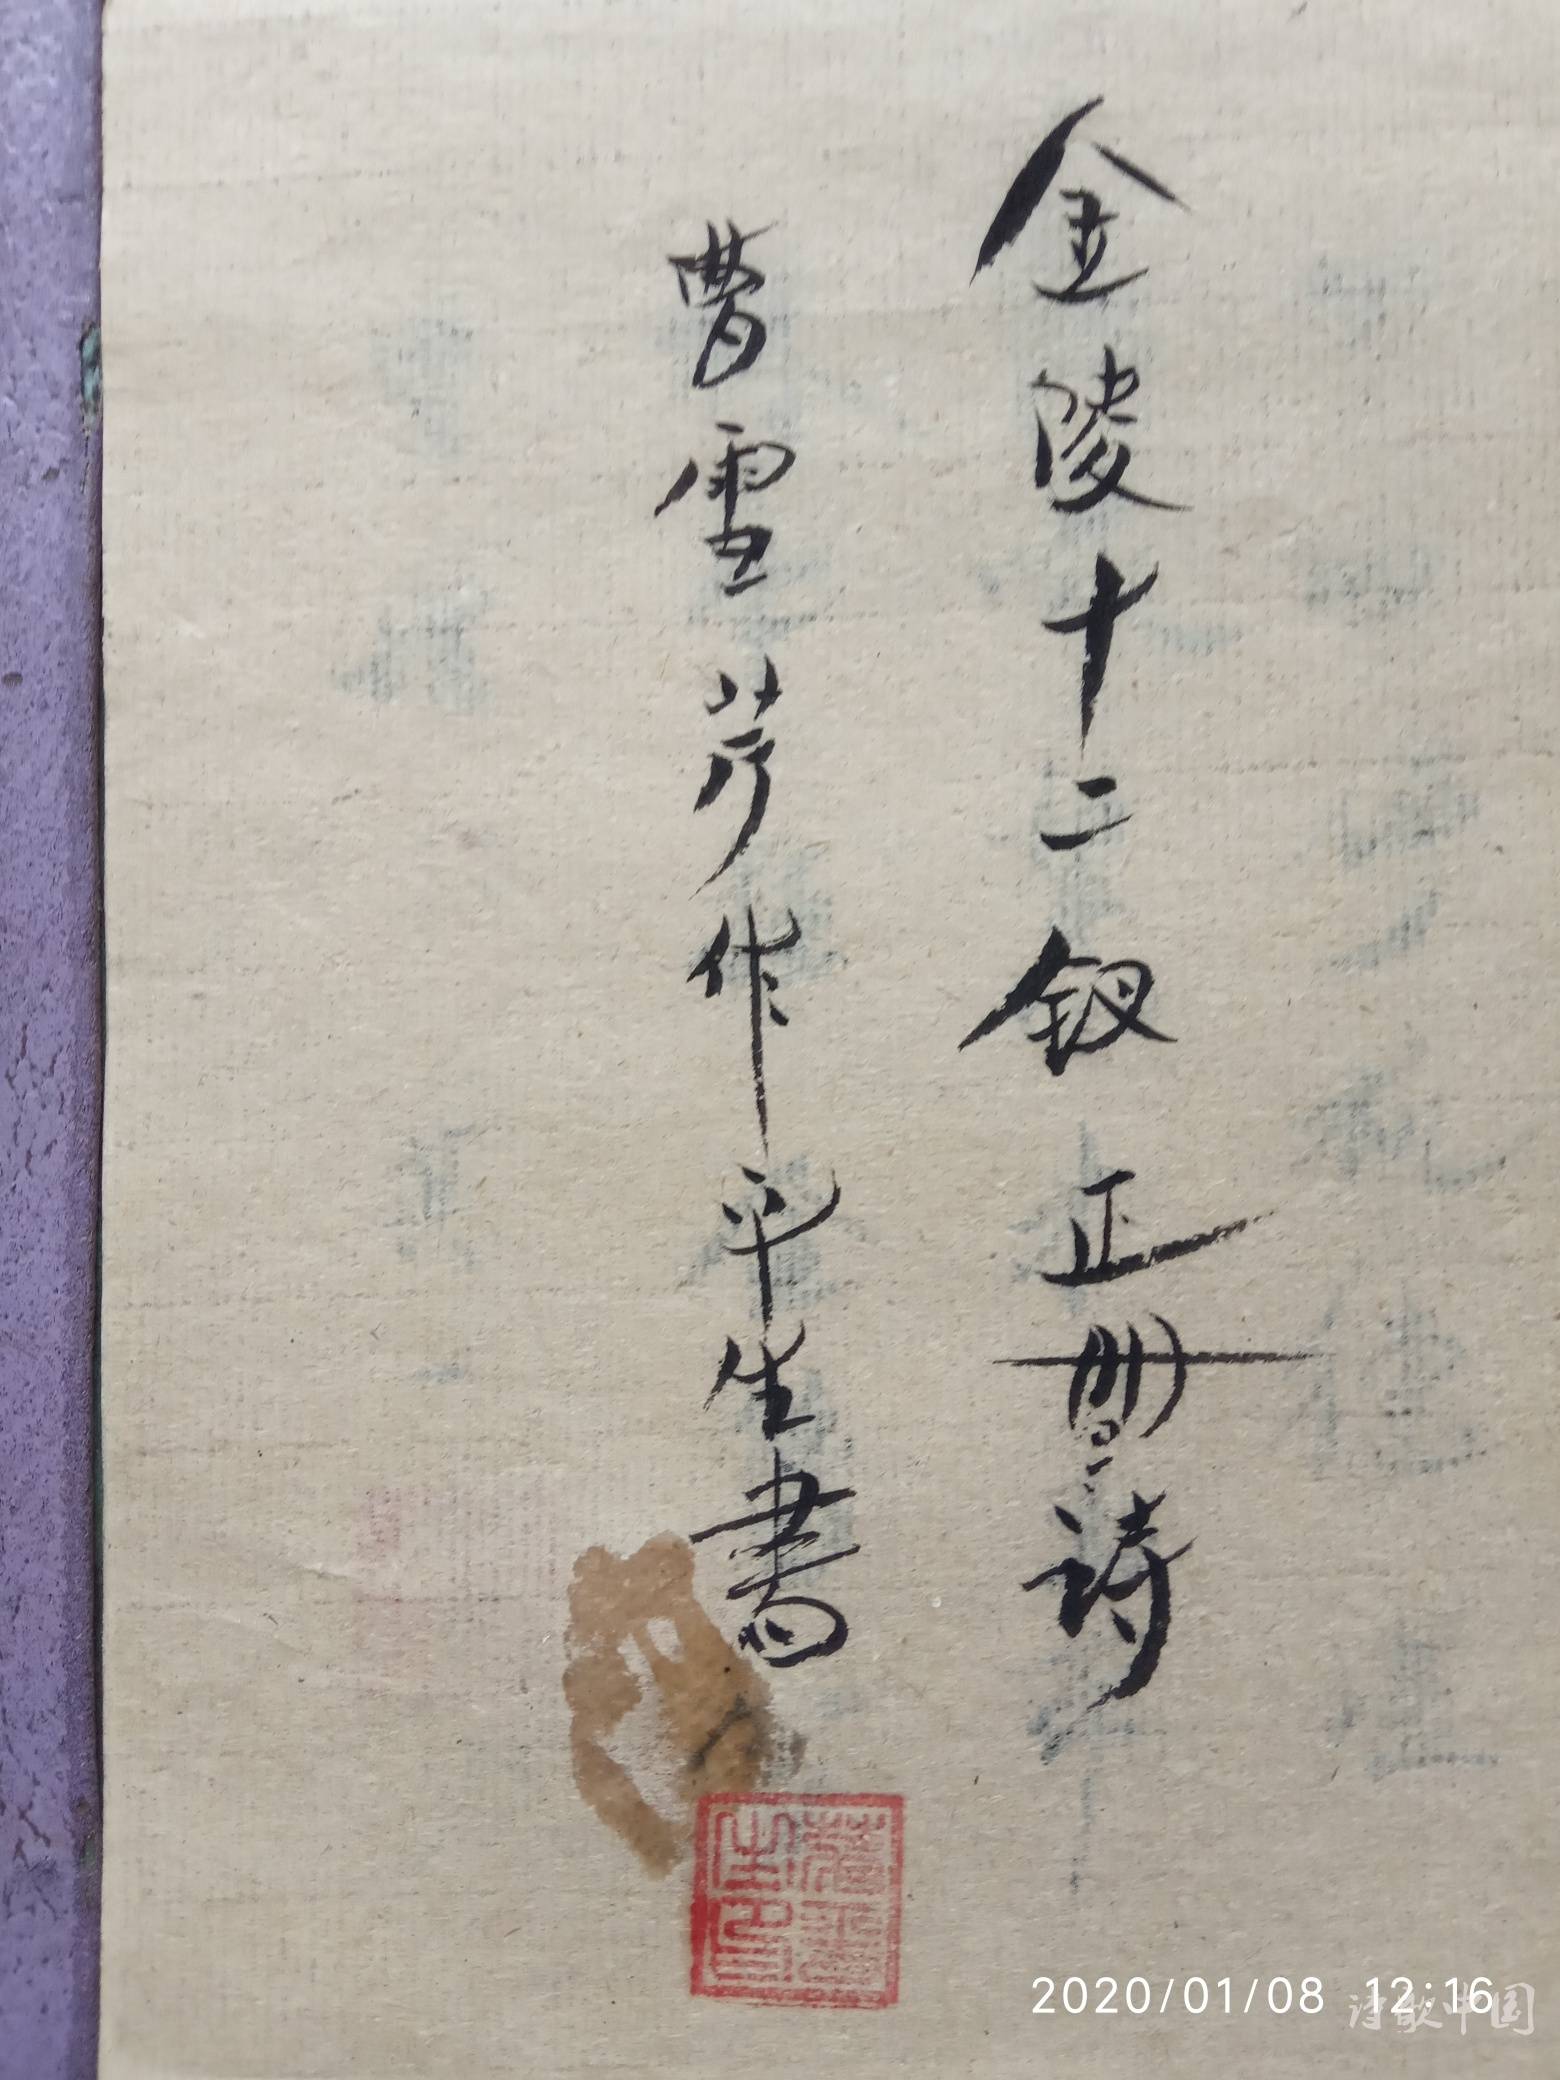 金陵十二釵正册之詩
曹雪芹作平生書
2020/01/08 12:16
诗歌中国